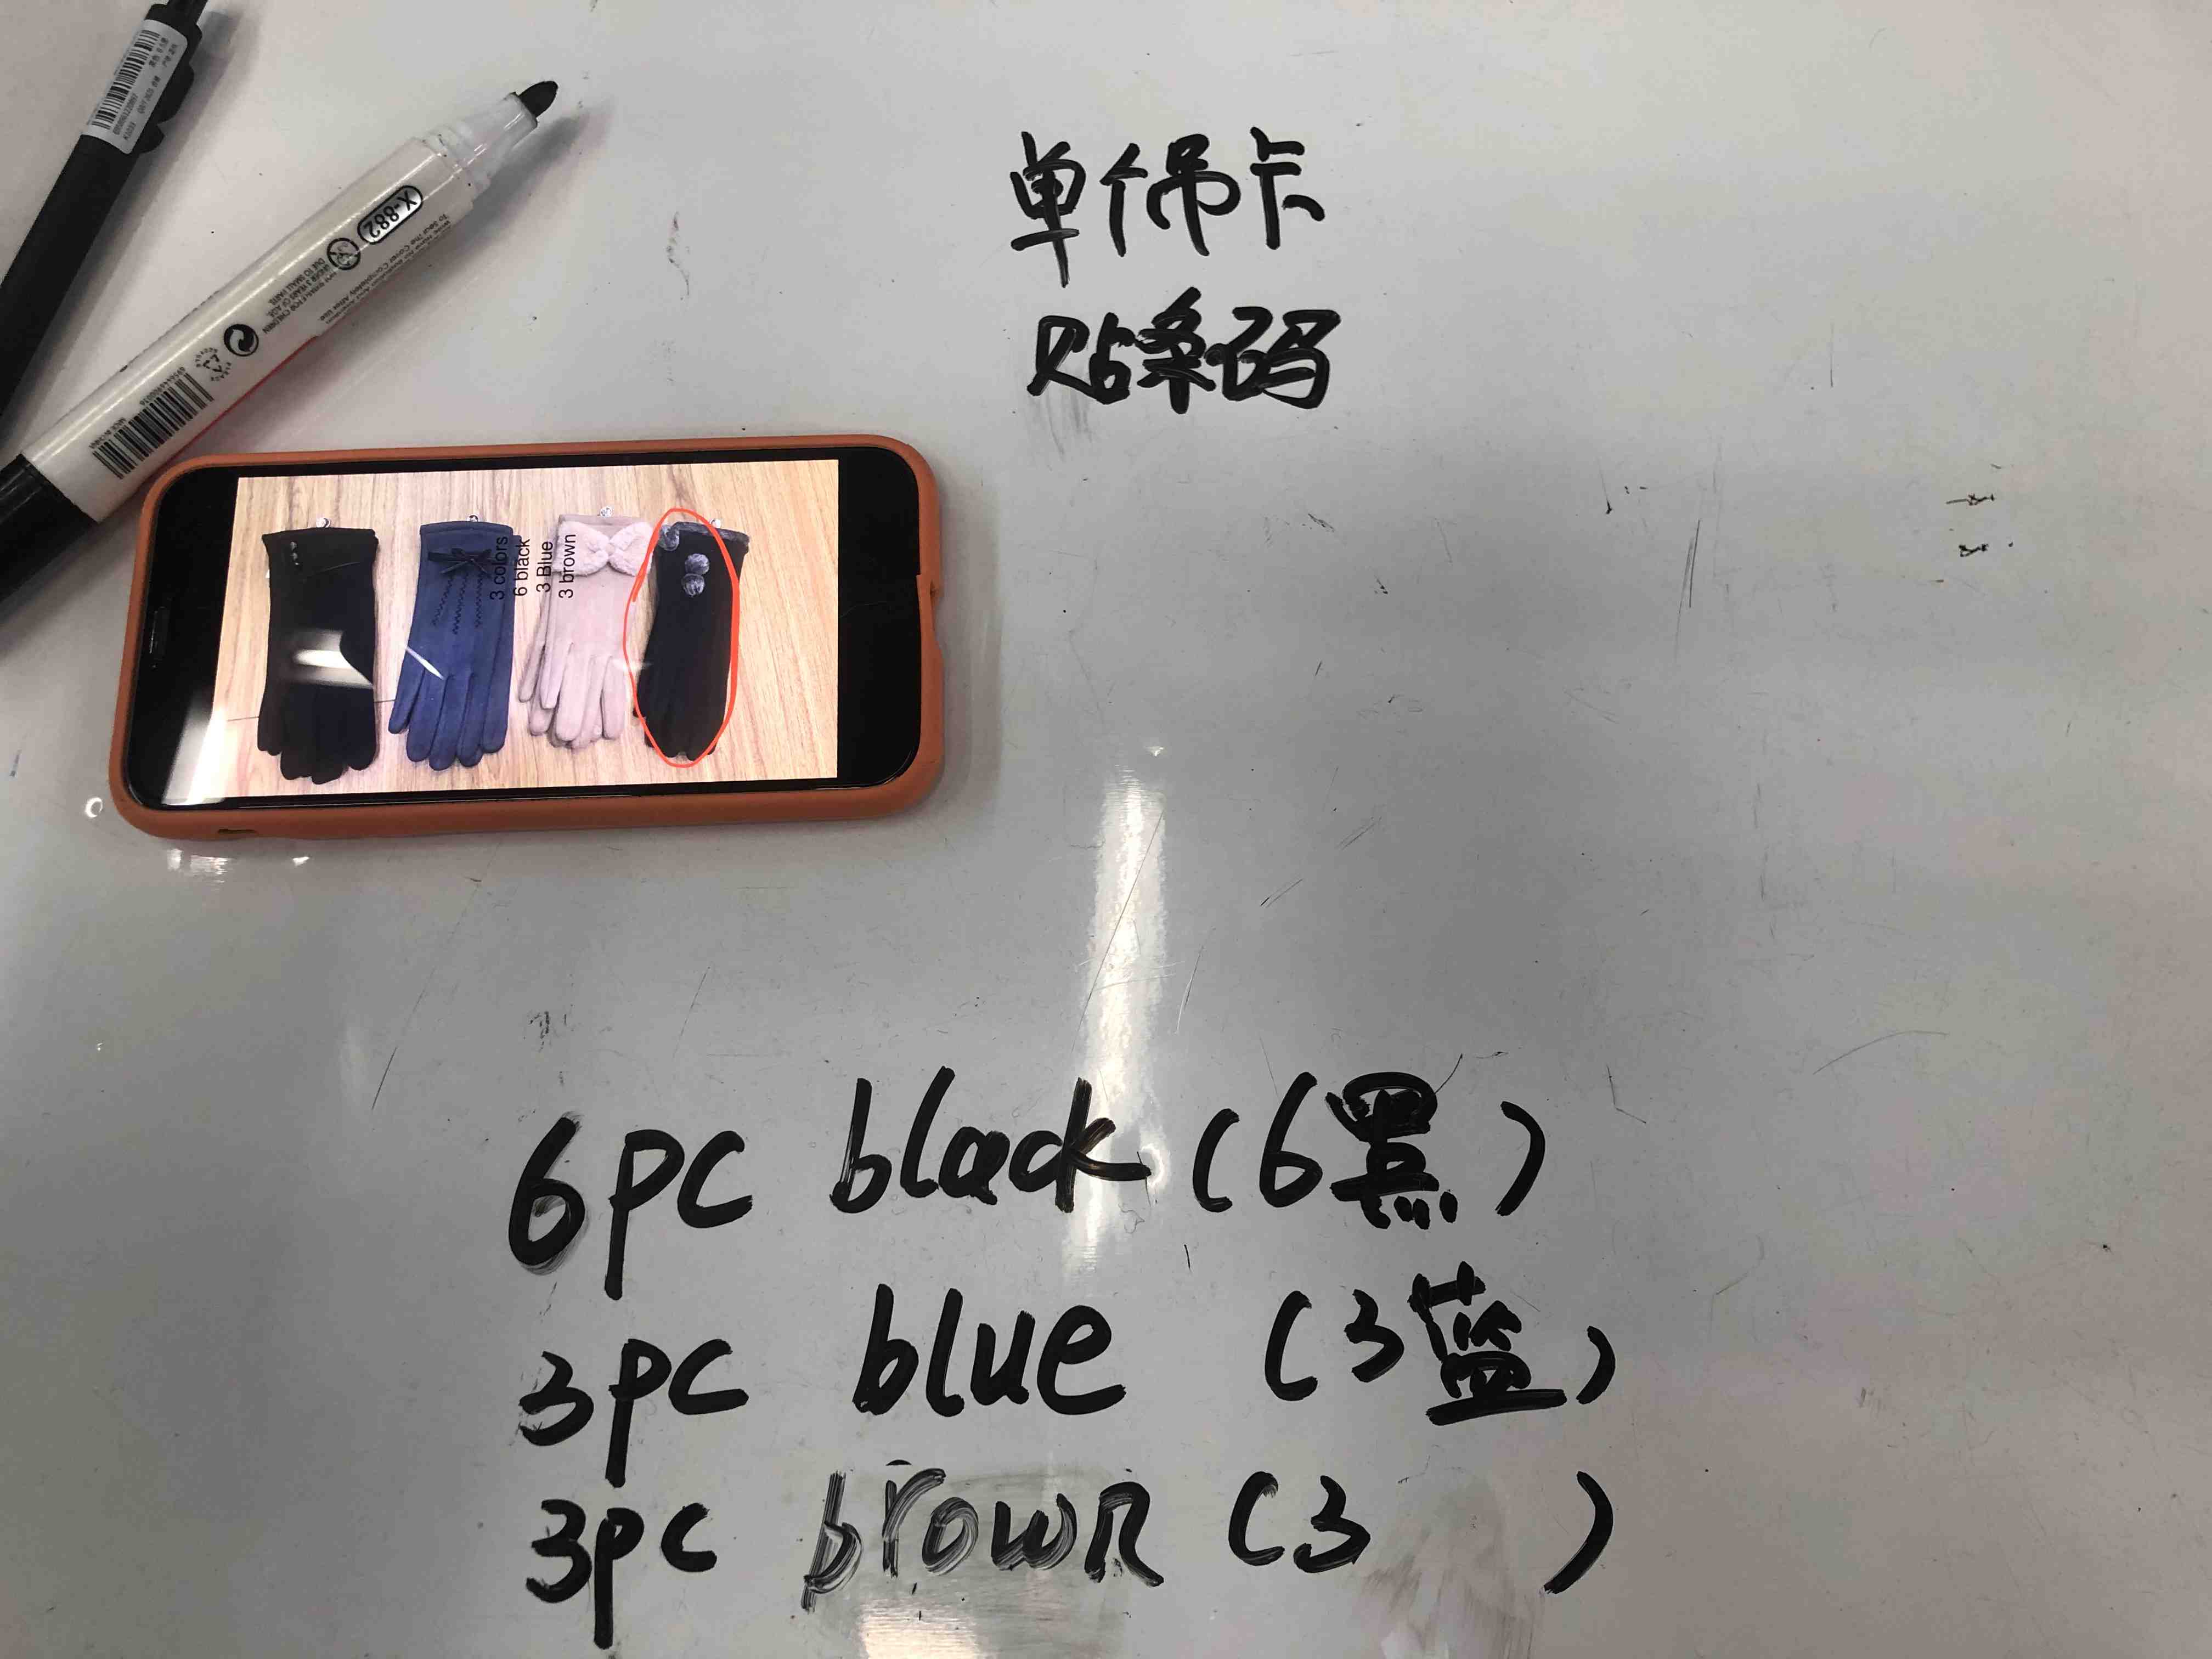 单个吊卡
贴条码
X-882
3 colors
6 black
3 Blue
3 brown
6pc black (6黑)
3pc blue (3蓝)
3pc brown (3 )